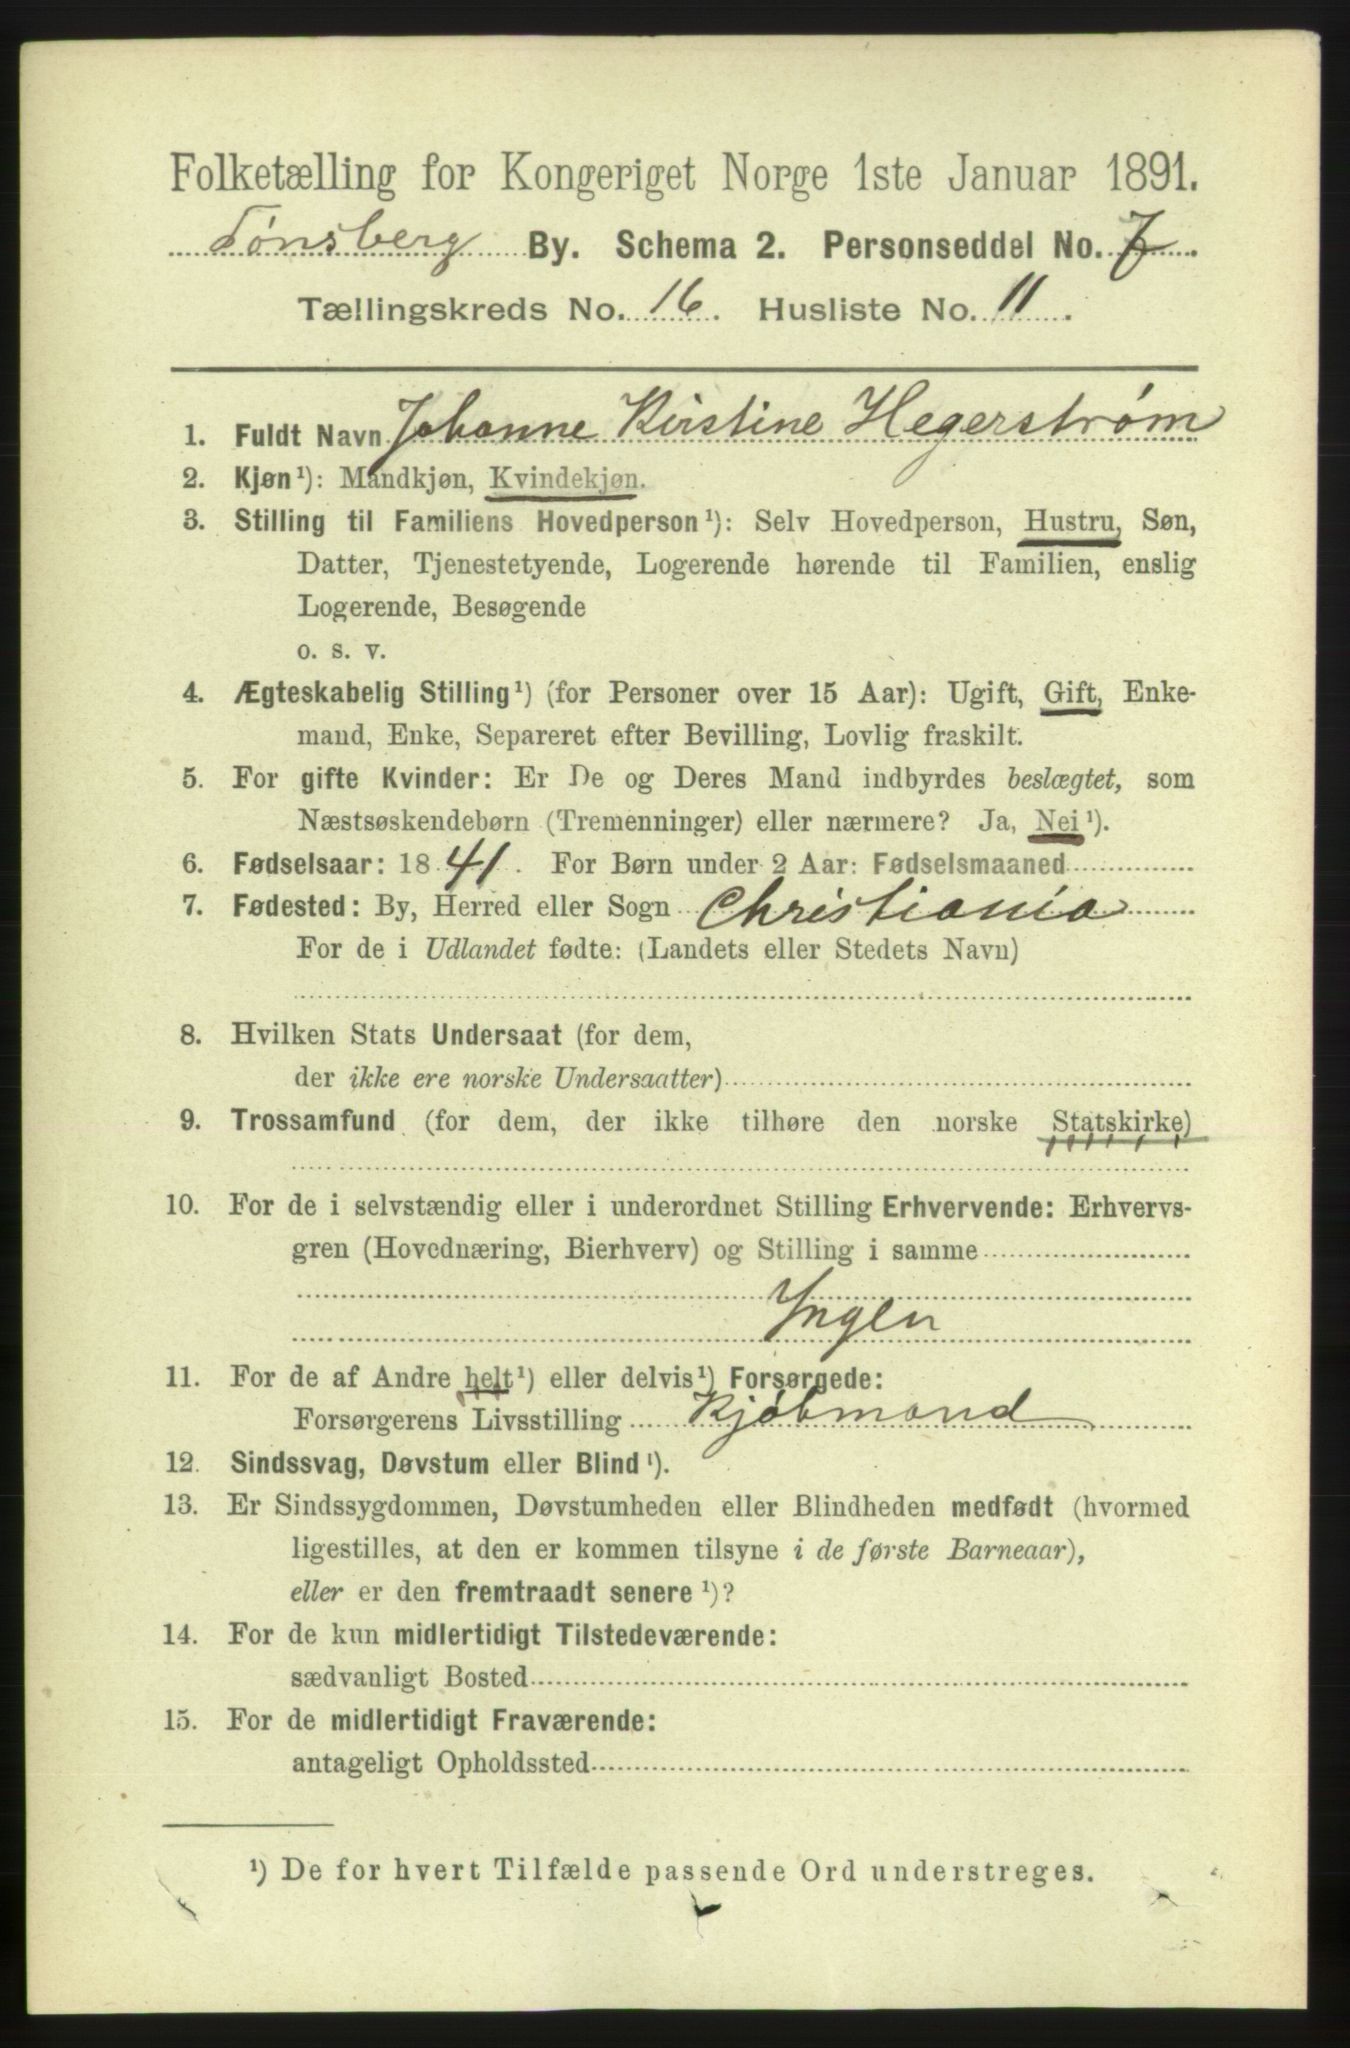 Folketælling for Kongeriget Norge 1ste Januar 1891.
Tønsberg By. Schema 2. Personseddel No. 7.
Tællingskreds No. 16. Husliste No. 11.
1. Fuldt Navn Johanne Kirstine Hegerstrøm
2. Kjøn¹): Mandkjøn, Kvindekjøn.
3. Stilling til Familiens Hovedperson¹): Selv Hovedperson, Hustru, Søn,
Datter, Tjenestetyende, Logerende hørende til Familien, enslig
Logerende, Besøgende
o. s. v.
4. Ægteskabelig Stilling¹) (for Personer over 15 Aar): Ugift, Gift, Enke-
mand, Enke, Separeret efter Bevilling, Lovlig fraskilt.
5. For gifte Kvinder: Er De og Deres Mand indbyrdes beslægtet, som
Næstsøskendebørn (Tremenninger) eller nærmere? Ja, Nei¹).
6. Fødselsaar: 1841. For Børn under 2 Aar: Fødselsmaaned
7. Fødested: By, Herred eller Sogn Christiania
For de i Udlandet fødte: (Landets eller Stedets Navn)
8. Hvilken Stats Undersaat (for dem,
der ikke ere norske Undersaatter)
9. Trossamfund (for dem, der ikke tilhøre den norske Statskirke)
10. For de i selvstændig eller i underordnet Stilling Erhvervende: Erhvervs-
gren (Hovednæring, Bierhverv) og Stilling i samme
Yngen
11. For de af Andre helt¹) eller delvis¹) Forsørgede:
Forsørgerens Livsstilling Kjøbmand
12. Sindssvag, Døvstum eller Blind¹).
13. Er Sindssygdommen, Døvstumheden eller Blindheden medfødt (hvormed
ligestilles, at den er kommen tilsyne i de første Barneaar),
eller er den fremtraadt senere¹)?
14. For de kun midlertidigt Tilstedeværende:
sædvanligt Bosted
15. For de midlertidigt Fraværende:
antageligt Opholdssted
¹) De for hvert Tilfælde passende Ord understreges.